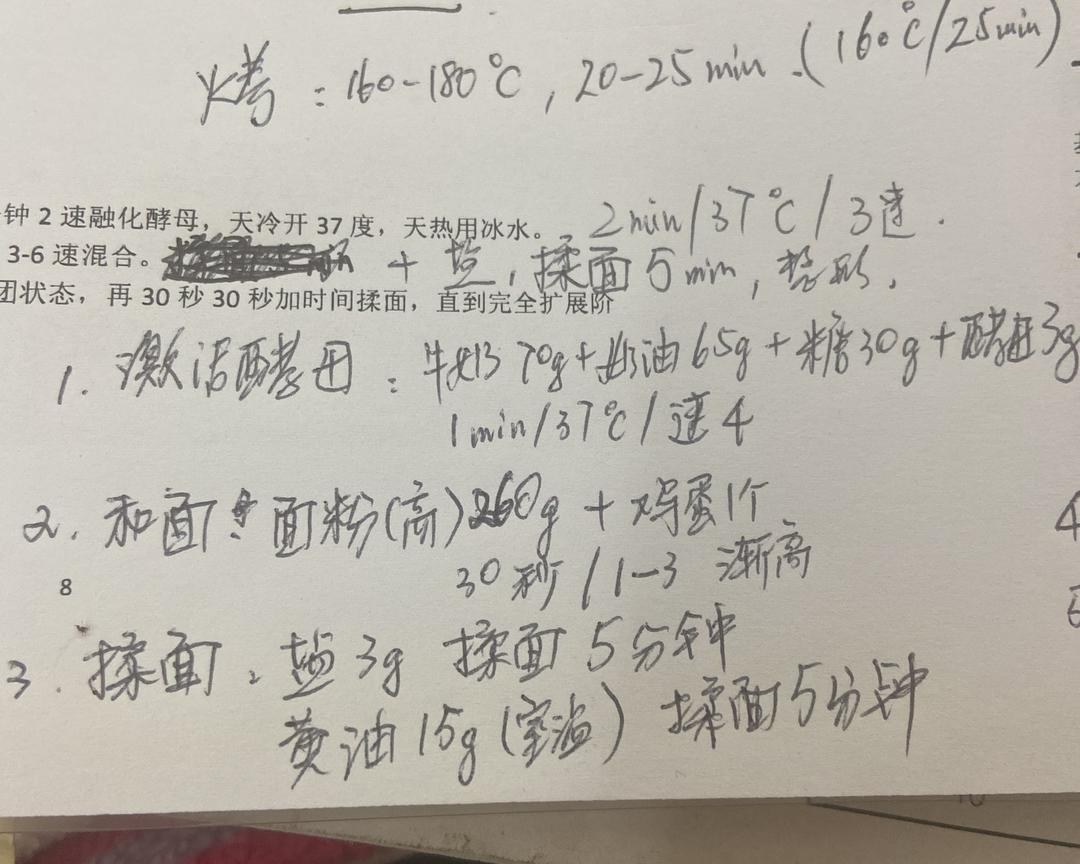 烤：160-180℃，20-25min.（160℃/25min）
钟 2 速融化酵母，天冷开 37 度，天热用冰水。 2min/37℃/3速.
3-6 速混合。 + 盐，揉面5min，整形.
团状态，再 30 秒 30 秒加时间揉面，直到完全扩展阶
1. 激活酵母：牛奶70g+奶油65g+糖30g+酵母3g
1min/37℃/速4
2. 和面：面粉(高)260g + 鸡蛋1个
30秒/1-3 渐高
8
3. 揉面：盐3g 揉面5分钟
黄油15g(室温) 揉面5分钟